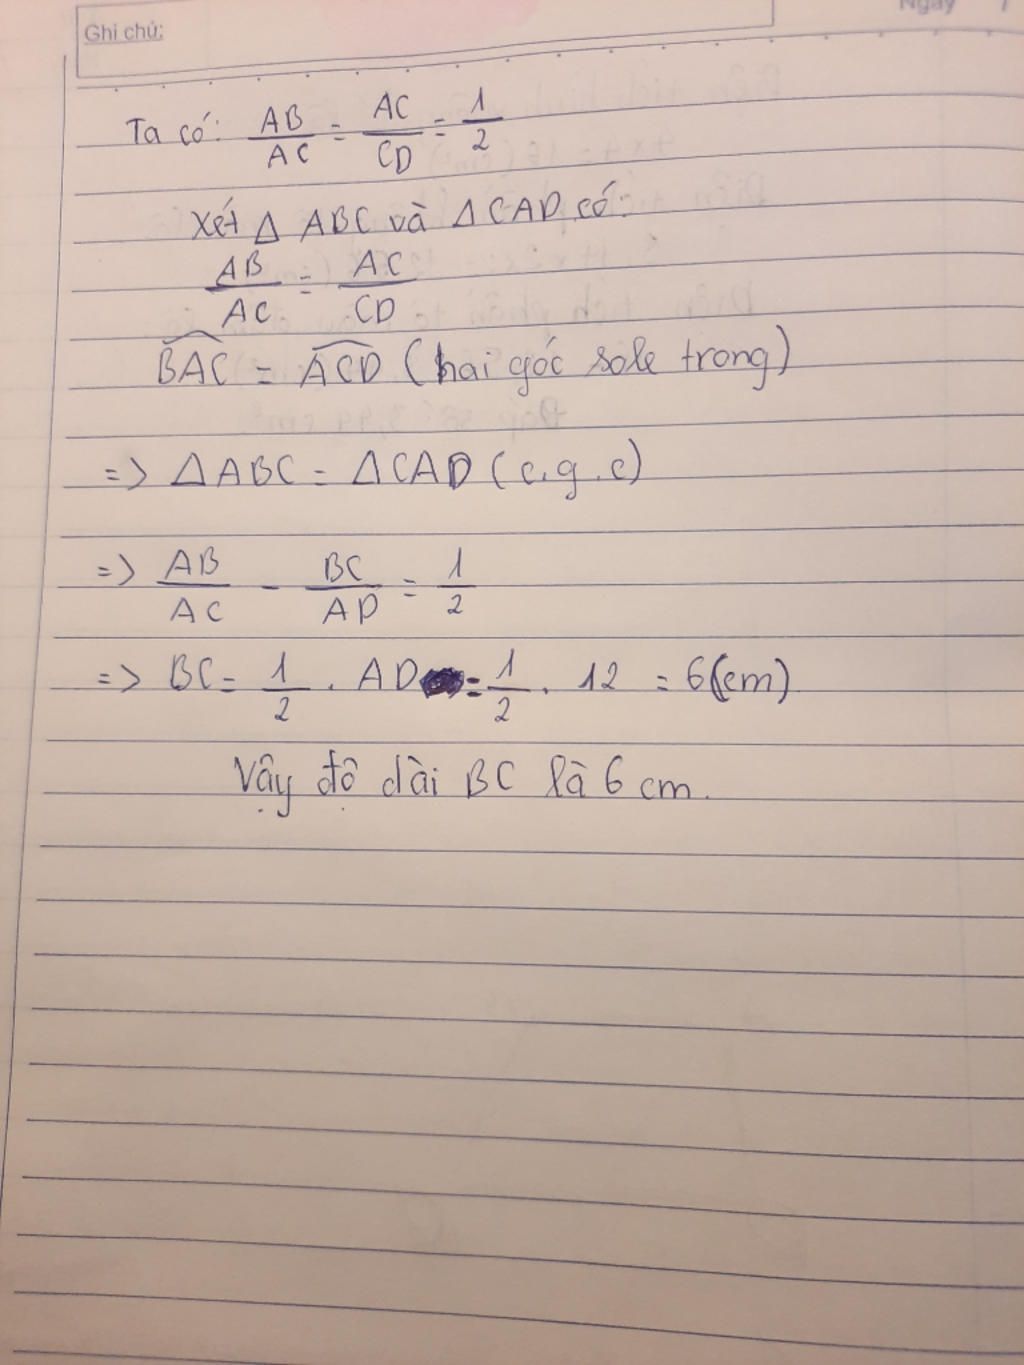 Ghi chú:
Ngày
Ta có: AB/AC = AC/CD = 1/2
Xét Δ ABC và Δ CAD có:
AB/AC = AC/CD
BAC = ACD (hai góc sole trong)
=> ΔABC = ΔCAD (c.g.c)
=> AB/AC - BC/AD = 1/2
=> BC = 1/2 . AD = 1/2 . 12 = 6(cm)
Vậy độ dài BC là 6 cm.